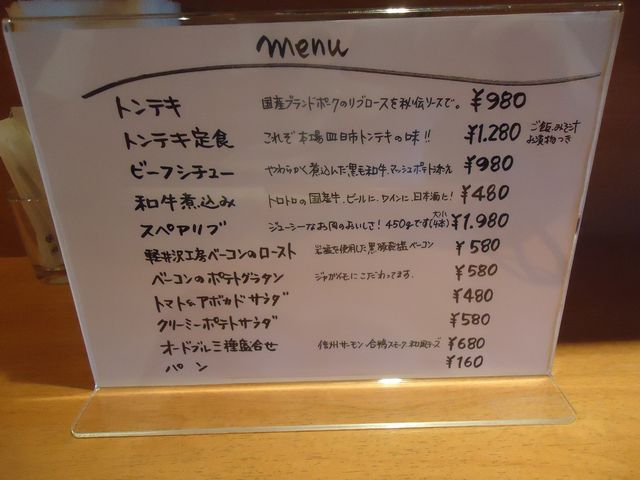 menu
トンテキ 国産ブランドポークのリブロースを秘伝ソースで。 ¥980
トンテキ定食 これぞ本場四日市トンテキの味!! ¥1.280 ご飯.みそ汁 お漬物つき
ビーフシチュー やわらかく煮込んだ黒毛和牛.マッシュポテト添え ¥980
和牛煮込み トロトロの国産牛.ビールに.ワインに.日本酒に! ¥480
スペアリブ ジューシーなお肉のおいしさ! 450gです(大小4本) ¥1.980
軽井沢工房ベーコンのロースト 岩塩を使用した黒豚乾塩ベーコン ¥580
ベーコンのポテトグラタン ジャガイモにこだわってます. ¥580
トマト&アボカドサラダ ¥480
クリーミーポテトサラダ ¥580
オードブル三種盛合せ 信州サーモン 合鴨スモーク.和風チーズ ¥680
パン ¥160